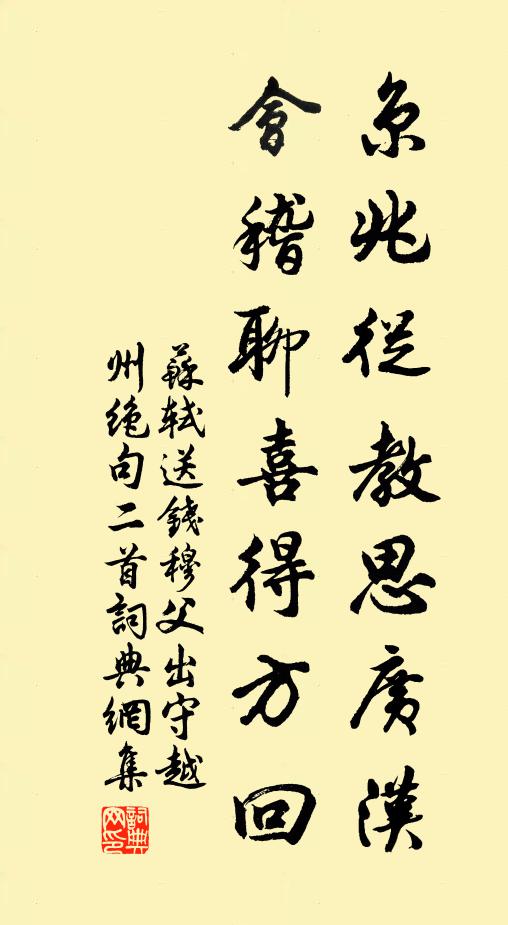 京兆從教思廣漢
會稽聊喜得方回
蘇軾送錢穆父出守越
州絕句二首詞典網集
詞典
网印